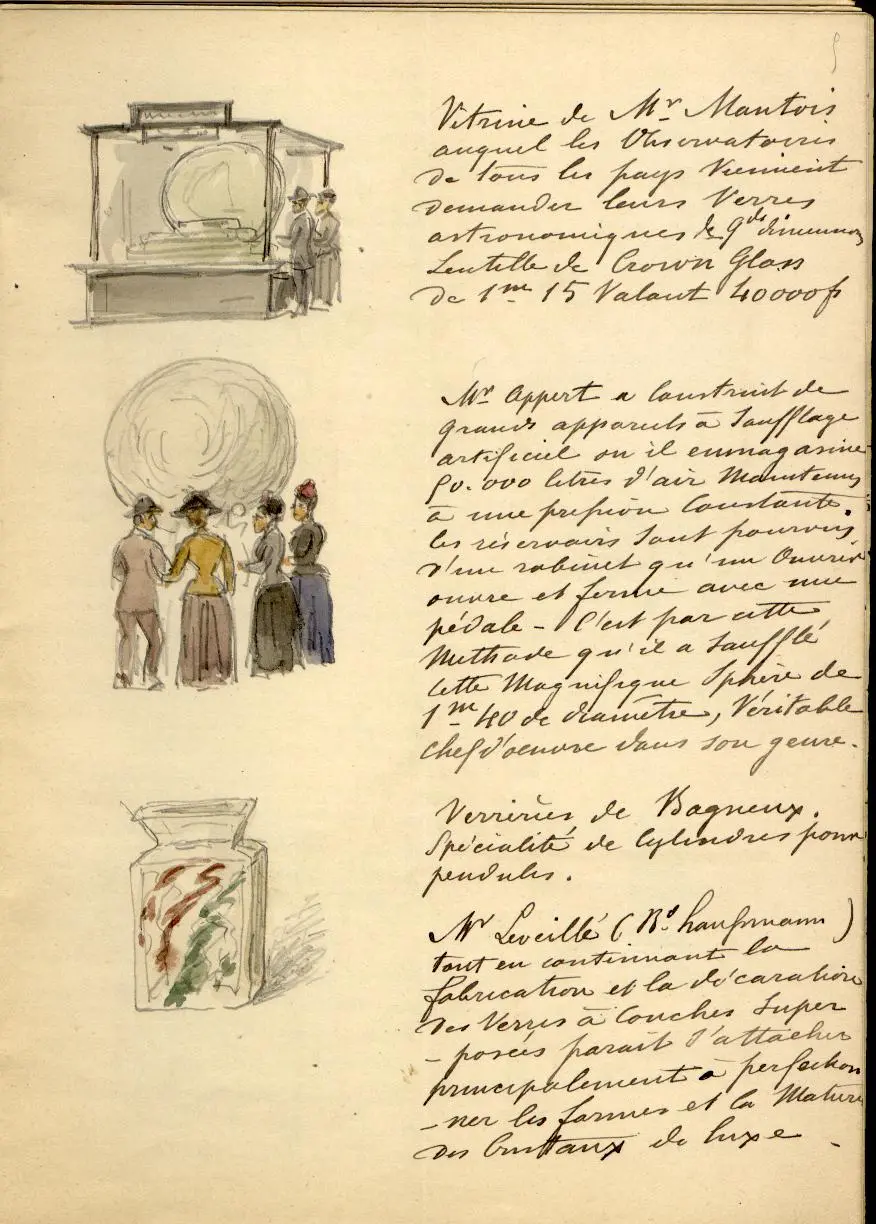 Vitrine de Mr Mantois
auquel les Observatoires
de tous les pays viennent
demander leurs Verres
astronomiques de gdes dimensions
Lentille de Crown Glass
de 1m 15 Valant 40000f
Mr Appert a Construit de
grands appareils à Soufflage
artificiel ou il emmagasine
50.000 litres d'air Maintenus
à une pression Constante.
les réservoirs Sont pourvus
d'un robinet qu'un Ouvrier
ouvre et ferme avec une
pédale - C'est par cette
Methode qu'il a Soufflé
cette Magnifique Sphère de
1m 40 de diamètre, Véritable
chef d'oeuvre dans son genre.
Verreries de Bagneux.
Spécialité de Cylindres pour
pendules.
Mr Leveillé (Bd haussmann)
tout en continuant la
fabrication et la décoration
des Verres à Couches Super
- posées parait s'attacher
principalement à perfection
- ner les formes et la Matière
des Cristaux de luxe -